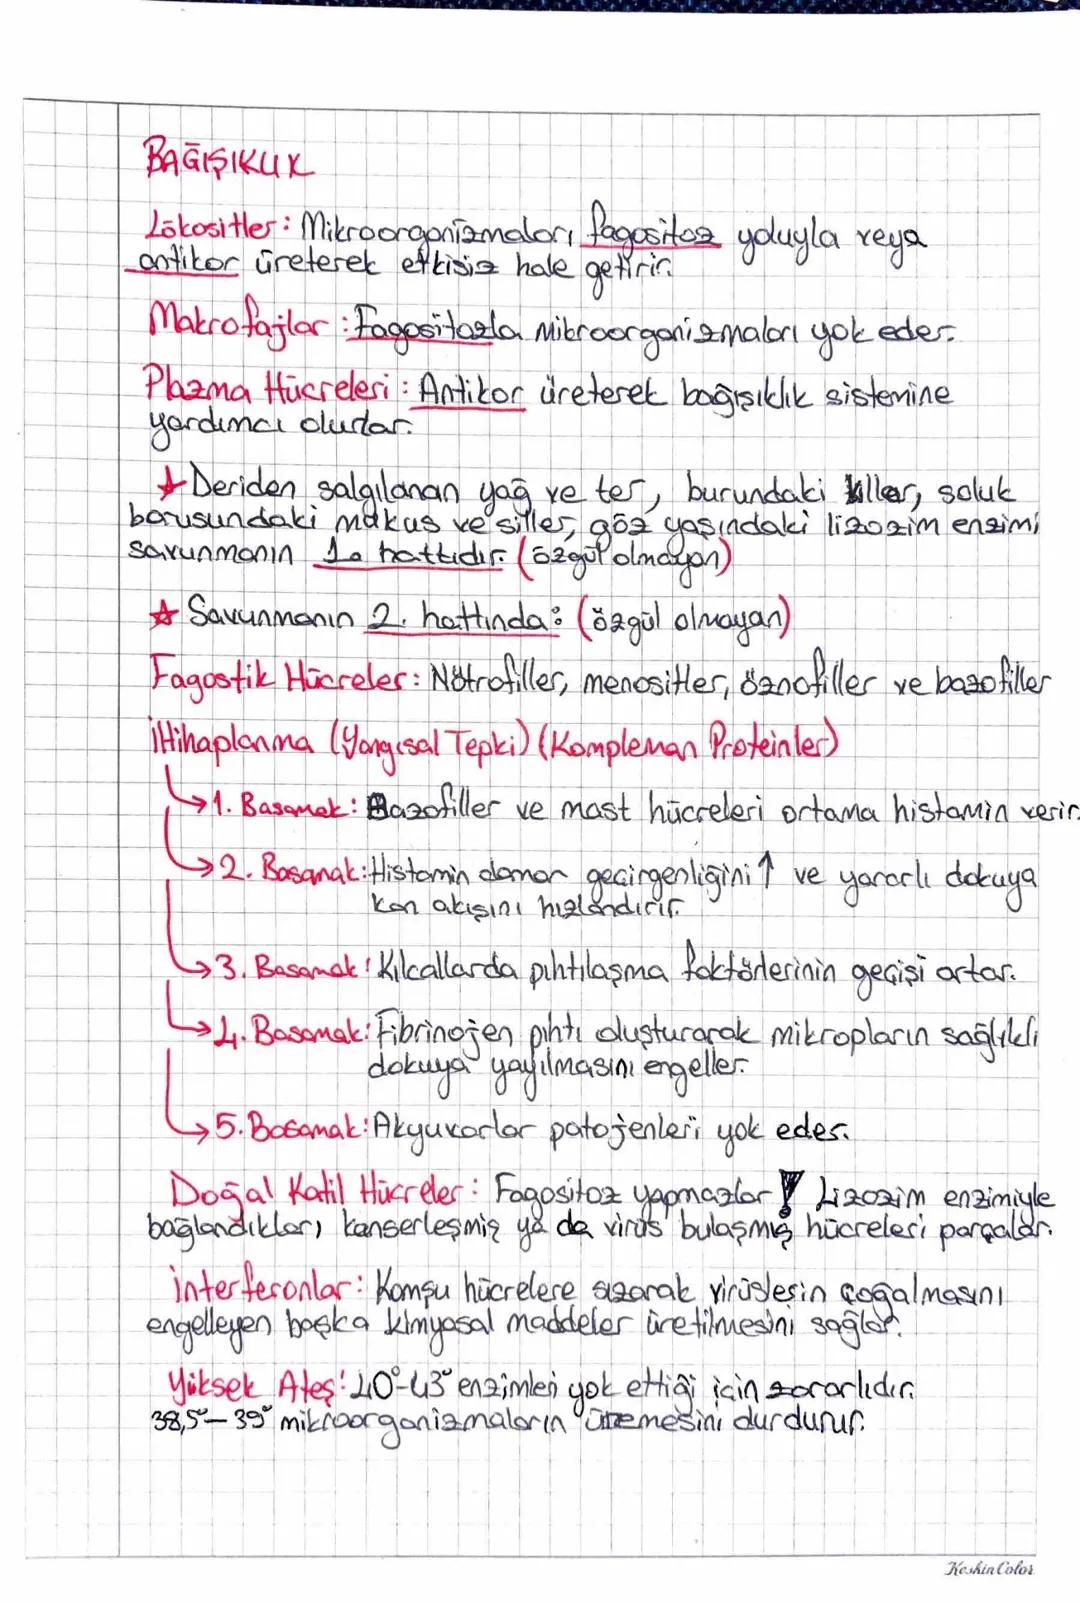 BAĞIŞIKLIK
Lökositler: Mikroorganizmaları fagositoz yoluyla veya
antikor üreterek etkisiz hale getirir.
Makrofajlar: Fagositozla mikroorganizmaları yok eder.
Plazma Hücreleri: Antikor üreterek bağışıklık sistemine
yardımcı olurlar.
☆ Deriden salgılanan yağ ve ter, burundaki kıllar, soluk
borusundaki mukus ve siller, göz yaşındaki lizozim enzimi
savunmanın 1. hattıdır. (özgül olmayan)
☆ Savunmanın 2. hattında: (özgül olmayan)
Fagostik Hücreler: Nötrofiller, monositler, öznofiller ve bazofiller
İltihaplanma (Yangısal Tepki) (Kompleman Proteinler)
→1. Basamak: Bazofiller ve mast hücreleri ortama histamin verir.
→2. Basamak: Histamin damar geçirgenliğini ↑ ve yararlı dokuya
kan akışını hızlandırır.
→3. Basamak: Kılcallarda pıhtılaşma faktörlerinin geçişi artar.
→4. Basamak: Fibrinojen pıhtı oluşturarak mikropların sağlıklı
dokuya yayılmasını engeller.
→5. Basamak: Akyuvarlar patojenleri yok eder.
Doğal Katil Hücreler: Fagositoz yapmazlar! Lizozim enzimiyle
bağlandıkları, kanserleşmiş ya da virüs bulaşmış hücreleri parçalar.
İnterferonlar: Komşu hücrelere sızarak virüslerin çoğalmasını
engelleyen başka kimyasal maddeler üretilmesini sağlar.
Yüksek Ateş: 40°-43° enzimleri yok ettiği için zararlıdır.
38,5°-39° mikroorganizmaların üremesini durdurur.
Keskin Color